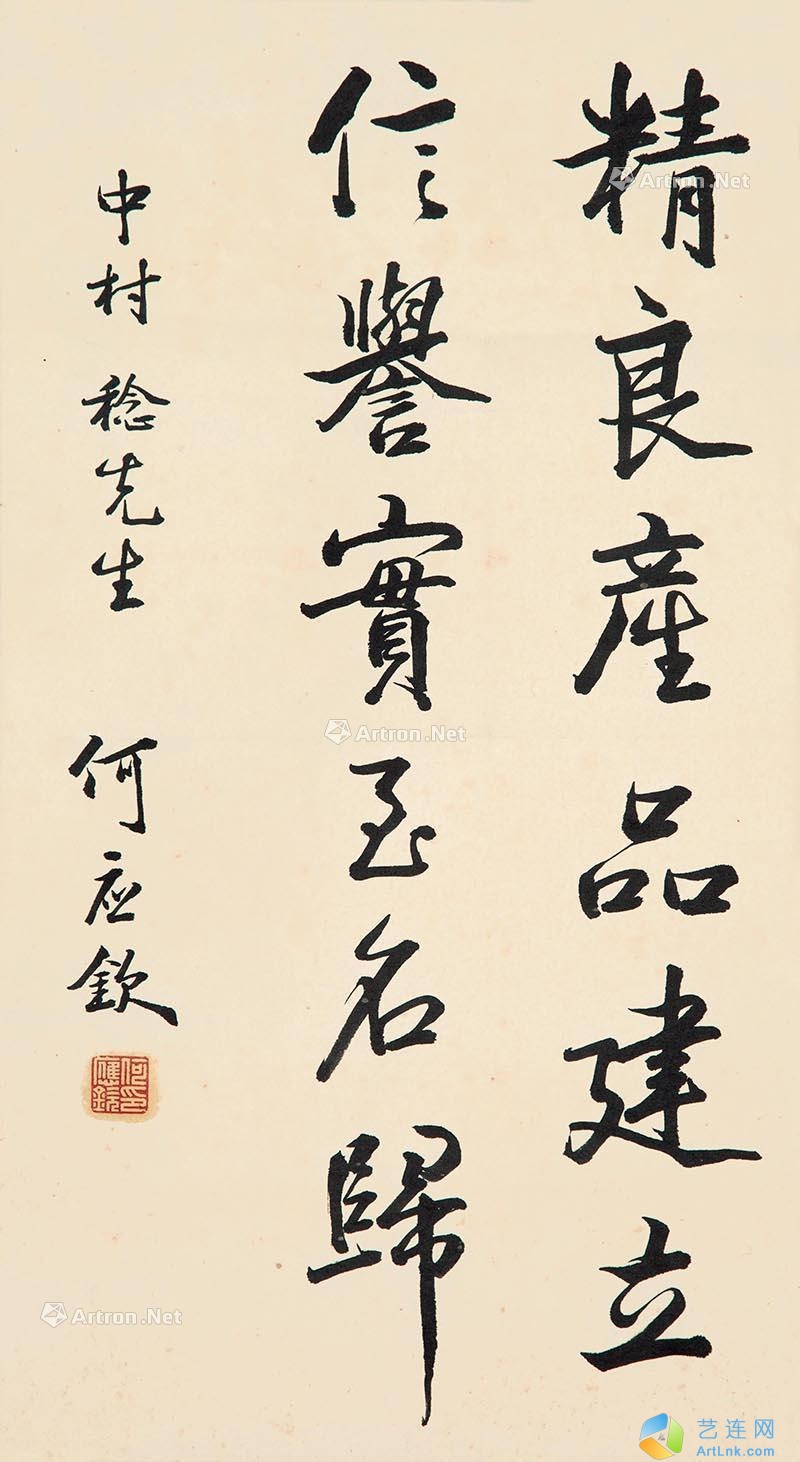 精良產品建立
信譽實至名歸
中村 稔先生 何应欽
何應欽印
Artron.Net
Artron.Net
Artron.Net
艺连网
ArtLnk.com